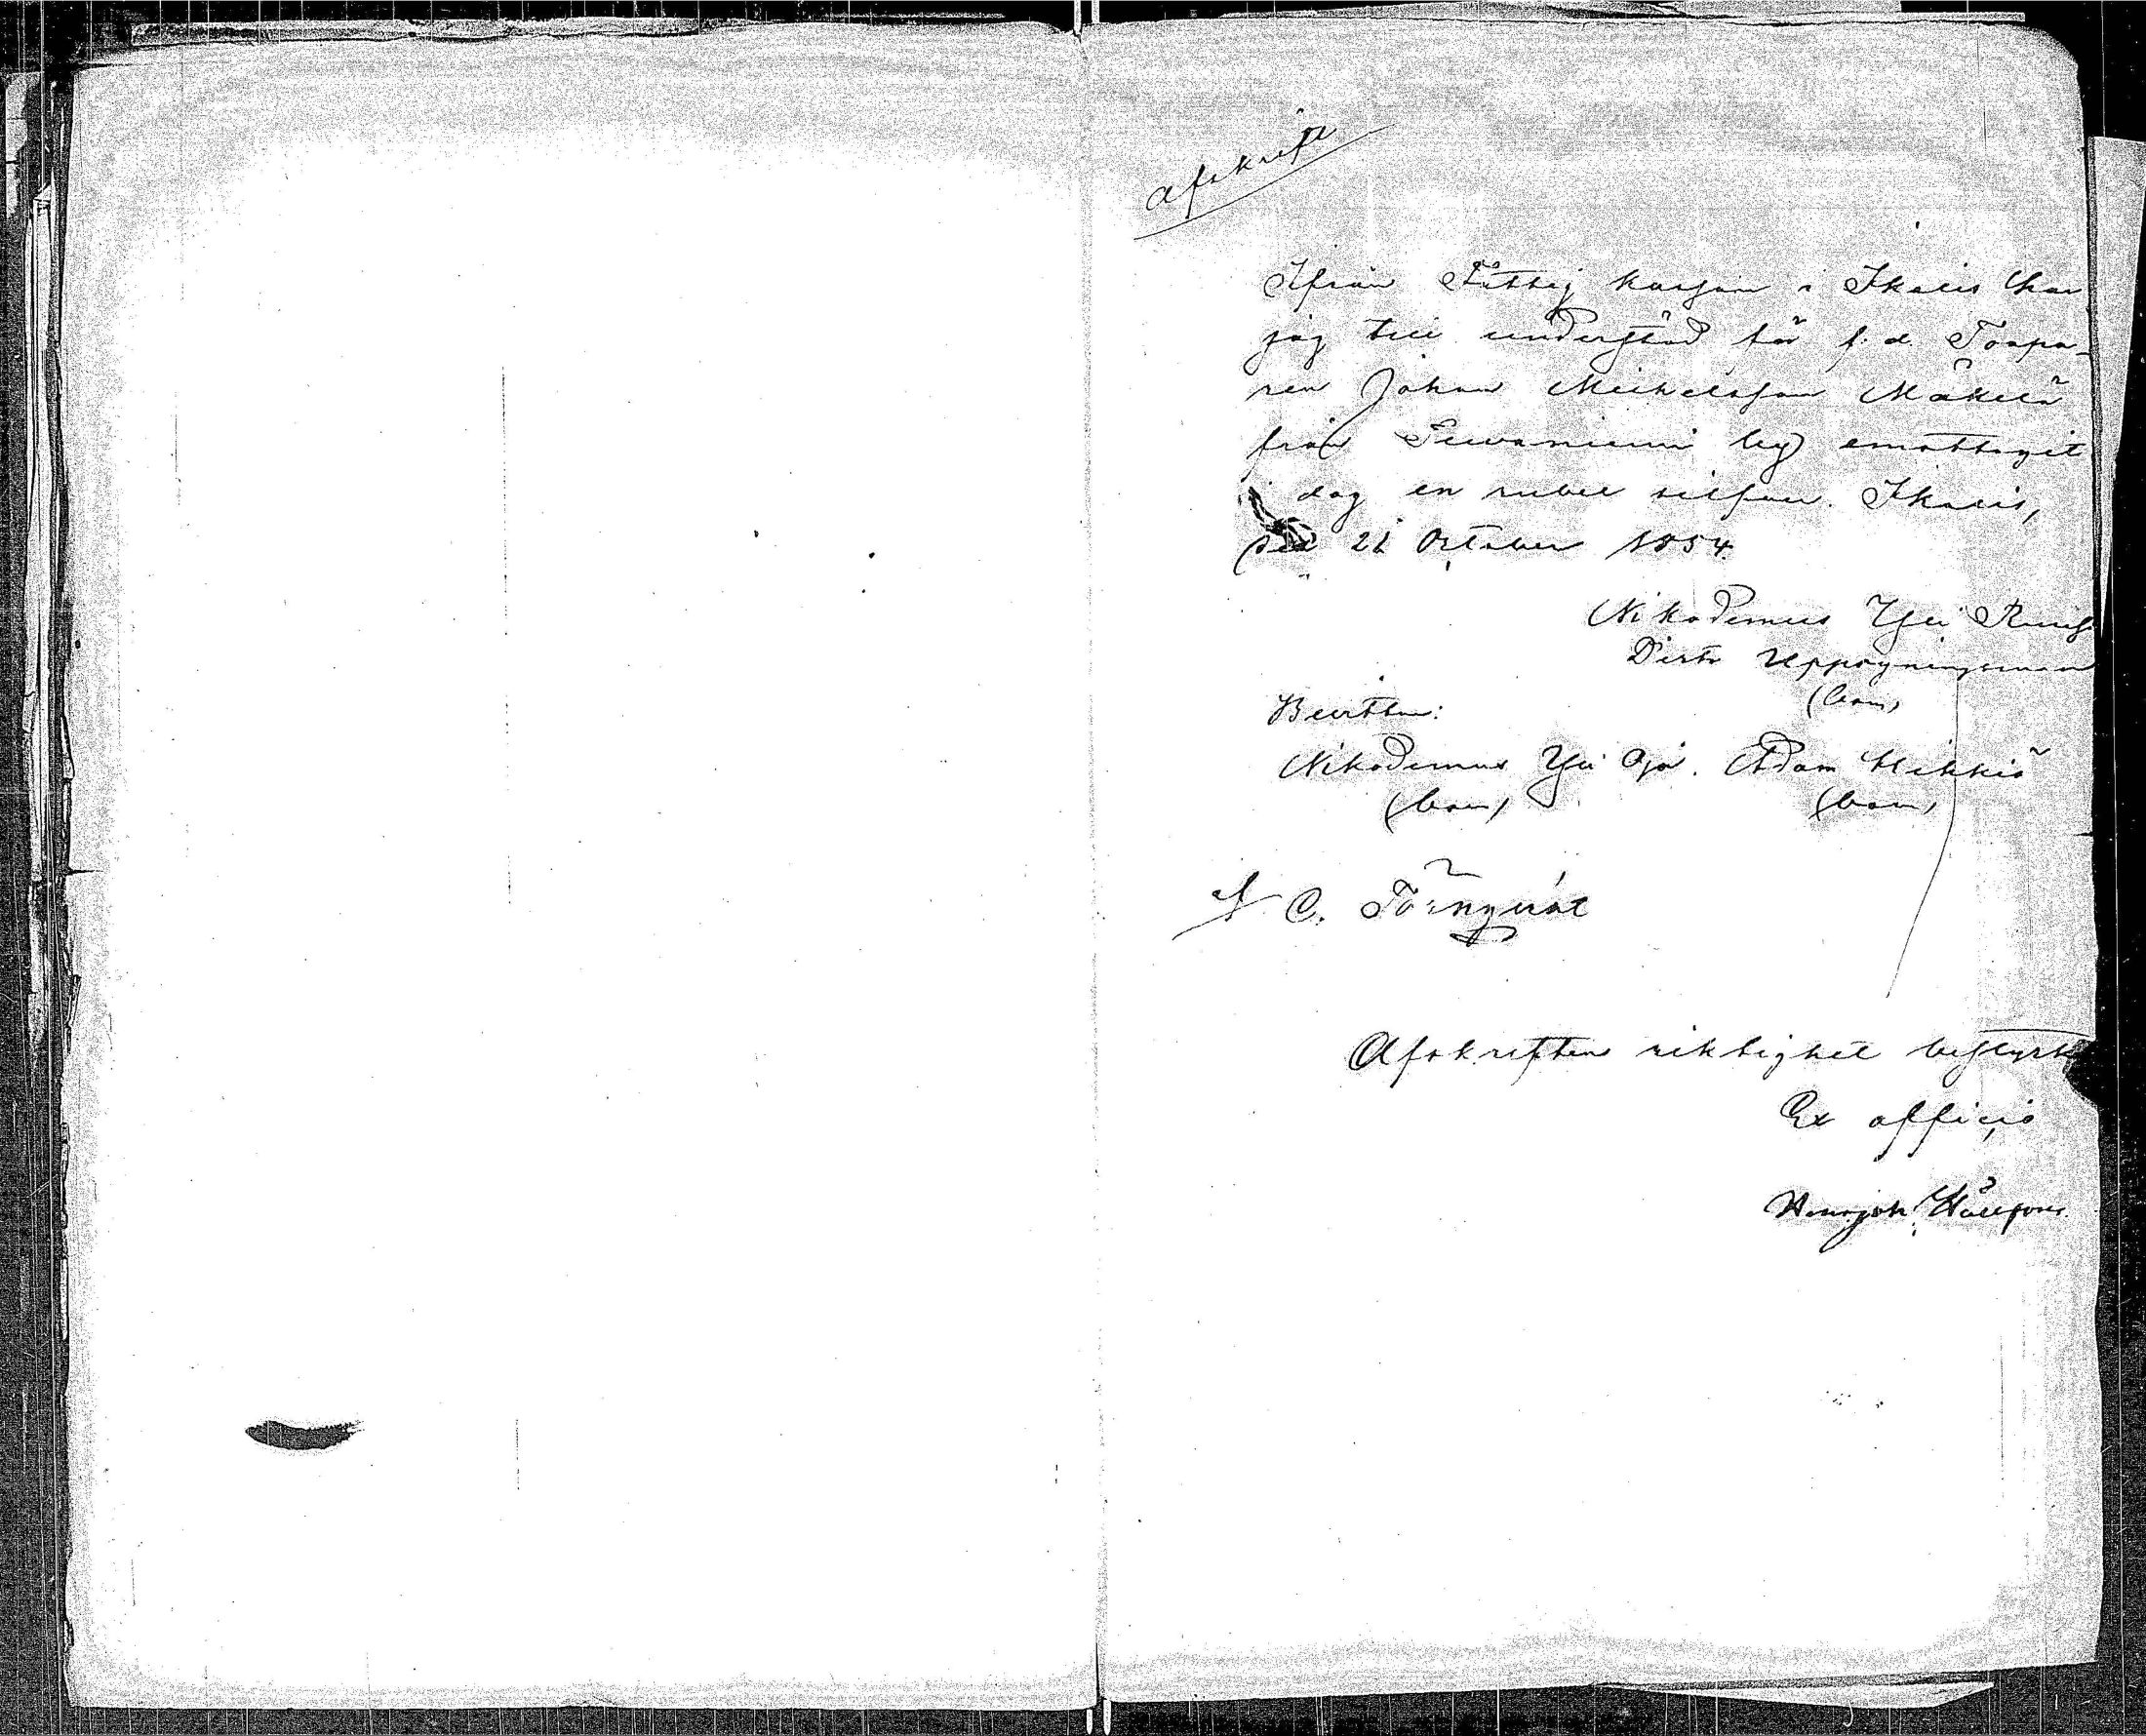 Afskrift
Ifrån Fattig kassan i Ikalis har
jag till understöd för f. d. Torpa-
ren Johan Michelsson Mäkelä
från Luvaniemi by emottagit
i dag en rubel silfver. Ikalis,
den 21 October 1854.
Nikodemus Yli
Distr Uppsyningsman
(bom)
Bevittna:
Nikodemus Yli Oja. Adam Heikkilä
(bom) (bom)
C. Törnqvist
Afskriftens riktighet bestyrker
Ex officio